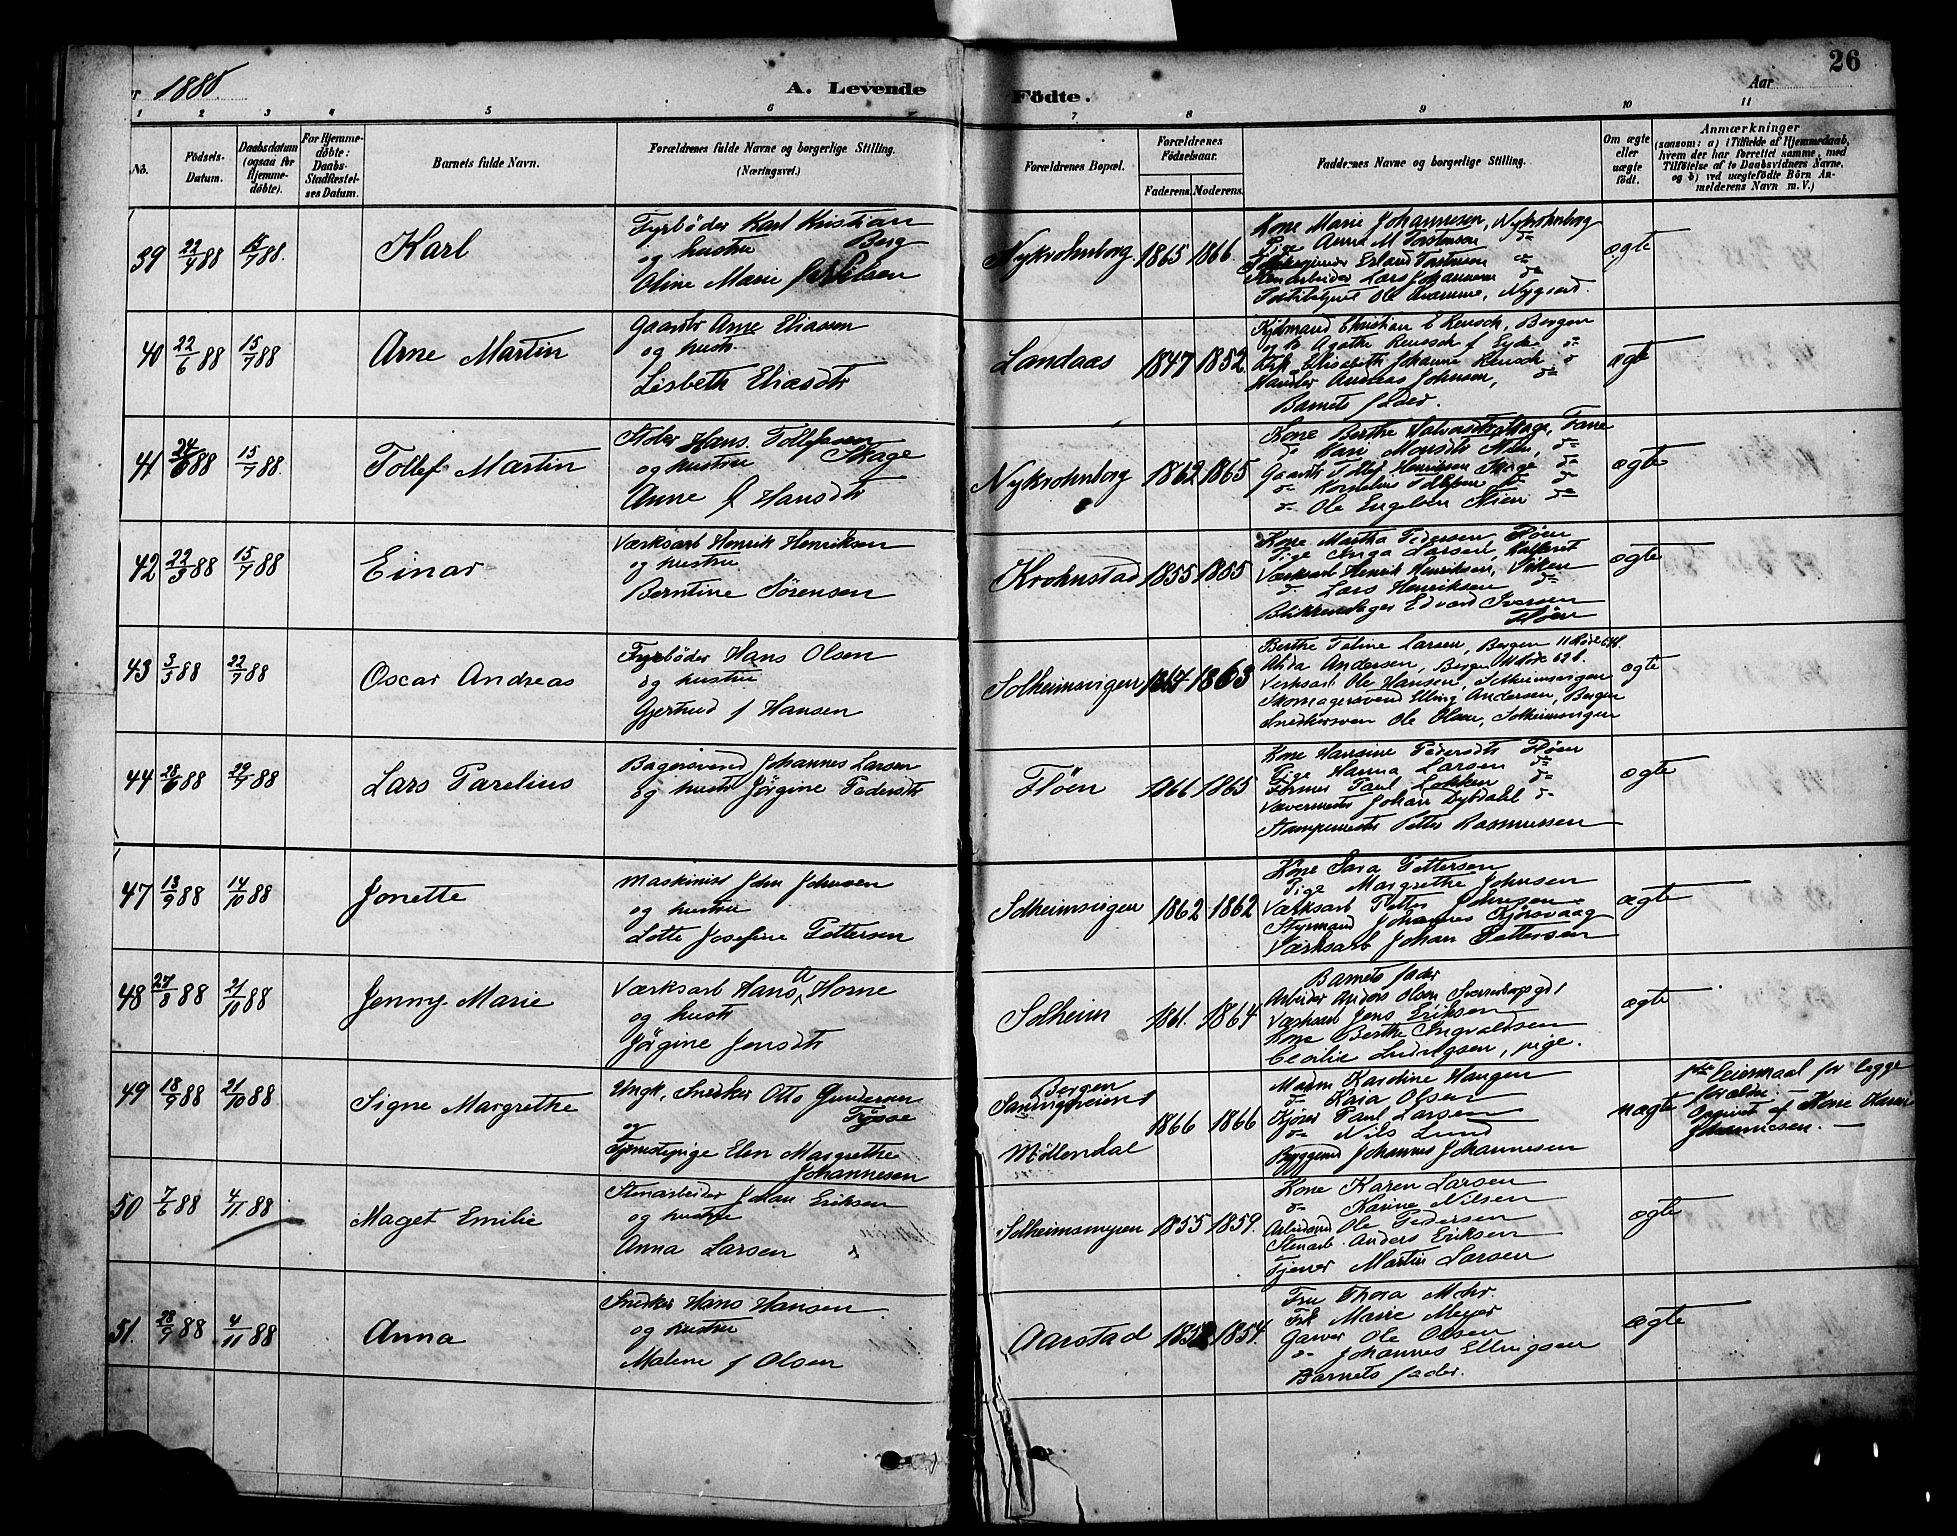 Aar 1888
A. Levende Födte.
26
Aar
1 2 3 4 5 6 7 8 9 10 11
No.
Födsels-Datum.
Daabsdatum (ogsaa for Hjemme-döbte).
For Hjemme-döbte: Daabs-Stadfæstel-ses Datum.
Barnets fulde Navn.
Forældrenes fulde Navne og borgerlige Stilling. (Næringsvei.)
Forældrenes Bopæl.
Forældrenes Födselsaar.
Faderens. Moderens.
Faddernes Navne og borgerlige Stilling.
Om ægte eller uægte födt.
Anmærkninger (saasom: a) i Tilfælde af Hjemmedaab, hvem der har forrettet samme, med Tilföielse af to Daabsvidners Navne, og b) ved uægtefödte Börn An-melderens Navn m. V.)
39 22/4 88 15/7 88. Karl
Fyrböder Karl Kristian Berg
og hustru
Oline Marie
Nykrohnborg 1865 1866.
Kone Marie Johannesen, Nykrohnborg
Pige Anna M Torstensen do
Stenarbeider Lars Johannesen do
ægte
40 22/6 88 15/7 88 Arne Martin
Gaardbr Arne Eliasen
og hustr.
Lisbeth Eliasdtr
Landaas 1847 1852
Kjöbmand Christian E Reusch, Bergen
Frk Elisabeth Johanne Reusch do
Handler Andreas Johnsen, do
Barnets fader.
ægte
41 24/6 88 15/7 88. Tollef Martin
Hans Tollefsen Skage
og hustru
Anne f Hansdtr
Nykrohnborg 1862 1865
Kone Berthe
Gaardb Tollef Henriksen Skage do
do Ole Engelsen
ægte
42 22/3 88 15/7 88 Einar
Værksarb Henrik Henriksen
og hustru
Berntine Sörensen
Krohnstad 1855 1855
Kone Martha Pedersen, Flöen
Pige Inga Larsen,
Værksarb Henrik Henriksen, Viken
do Lars Henriksen do
Blikkenslager Edvard Iversen Flöen
ægte
43 3/5 88 22/7 88 Oscar Andreas
Fyrböder Hans Olsen
og hustru
Gjertrud f Hansen
Solheimsvigen 1864 1863
Berthe Larsen, Bergen
Alida Andersen, Bergen
Verksarb Ole Hansen, Solheimsvigen
Skomagersvend Elling Andersen, Bergen
Snedkersven Ole Olsen, Solheimsvigen
ægte
44 28/6 88 29/7 88 Lars Parelius
Bagersvend Johannes Larsen
og hustr Jörgine Pedersdtr
Flöen 1866 1865
Kone Hansine Pedersdtr Flöen
Pige Hanna Larsen do
Paul Lokken do
Vævermester Johan Dybdahl do
Stampemester Petter Rasmussen
ægte
47 13/9 88 14/10 88 Jonette
Maskinist John Johnsen
og hustru
Lotte Josefine Pettersen
Solheimsvigen 1862 1862
Kone Sara Pettersen
Pige Margrethe Johnsen
Værksarb Petter Johnsen
Styrmand Johannes Kjörsvaag
Værksarb Johan Pettersen
ægte
48 27/8 88 21/10 88 Jenny Marie
Værksarb Hans A Horne
og hustr
Jörgine Jensdtr
Solheim 1861. 1864
Barnets fader
Arbeider Anders Olsen
Værksarb Jens Eriksen
Kone Berthe Ingvaldsen
Cecilie Ludvigsen, pige.
ægte
49 18/9 88 21/10 88 Signe Margrethe
Ungk, Snedker Otto Gundersen
og
Tjenestepige Elen Margrethe Johannesen
Bergen
Möllendal 1866 1866
Madm Karoline Haugen
do Kaia Olsen
Kjörer Paul Larsen
do Nils Lund
Johannes Johannesen
uægte
1ste Leiermaal for begge forældre
Opgivet af Kone Karen Johannesen.
50 7/6 88 4/11 88 Maget Emilie
Stenarbeider Johan Eriksen
og hustru
Anna Larsen
Solheimsvigen 1855 1859.
Kone Karen Larsen
do Karine Nilsen
Ole Pedersen
Stenarb. Anders Eriksen
Tjener Martin Larsen
ægte
51. 28/9 88 4/11 88 Anna
Snedker Hans Hansen
og hustru
Malene f Olsen
Aarstad 1854.
Fru Thora Mohr
Frk Marie Meyer
Garver Ole Olsen
do Johannes Ellingsen
Barnets fader.
ægte